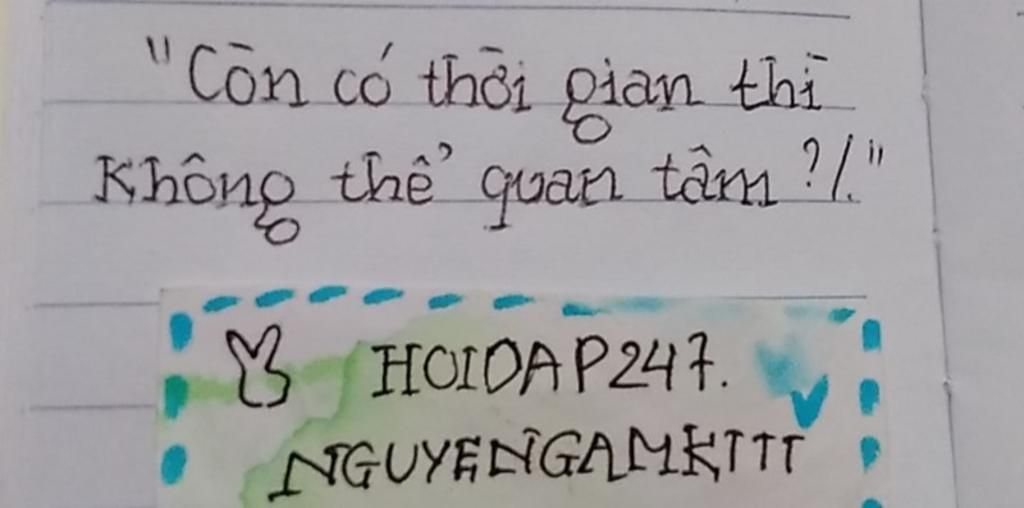 "Còn có thời gian thì
Không thể quan tâm ?!."
HOIDAP247.
NGUYENGAMKTTT